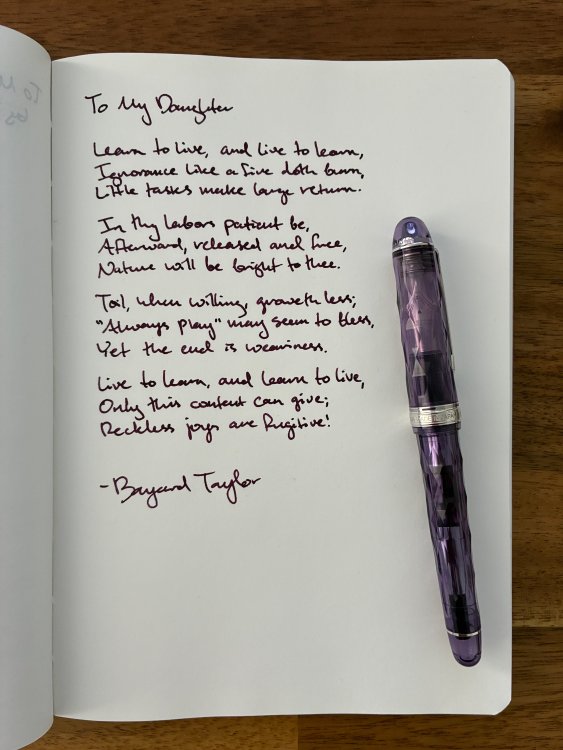 To My Daughter
Learn to live, and live to learn,
Ignorance like a fire doth burn,
Little tasks make large return.
In thy labors patient be,
Afterward, released and free,
Nature will be bright to thee.
Toil, when willing, groweth less;
"Always play" may seem to bless,
Yet the end is weariness.
Live to learn, and learn to live,
Only this content can give;
Reckless joys are fugitive!
-Bayard Taylor